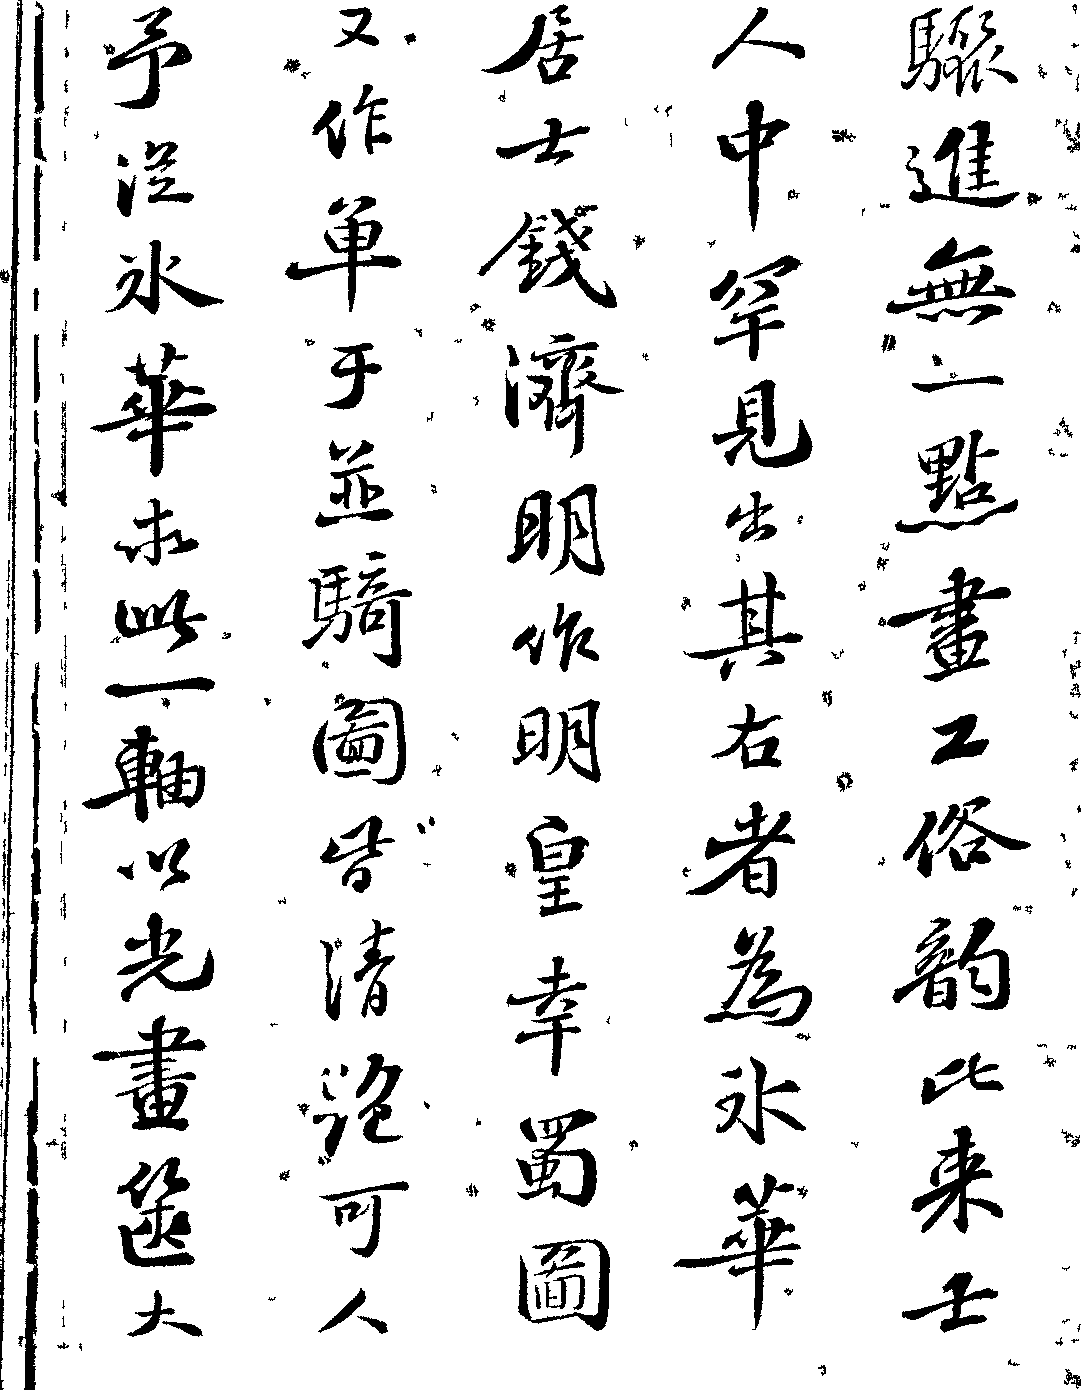 驟進無一點畫工俗韵比来士
人中罕見出其右者為氷華
居士錢濟明作明皇幸蜀圖
又作单于並騎圖皆清絶可人
予從氷華求此一軸以光畫篋大